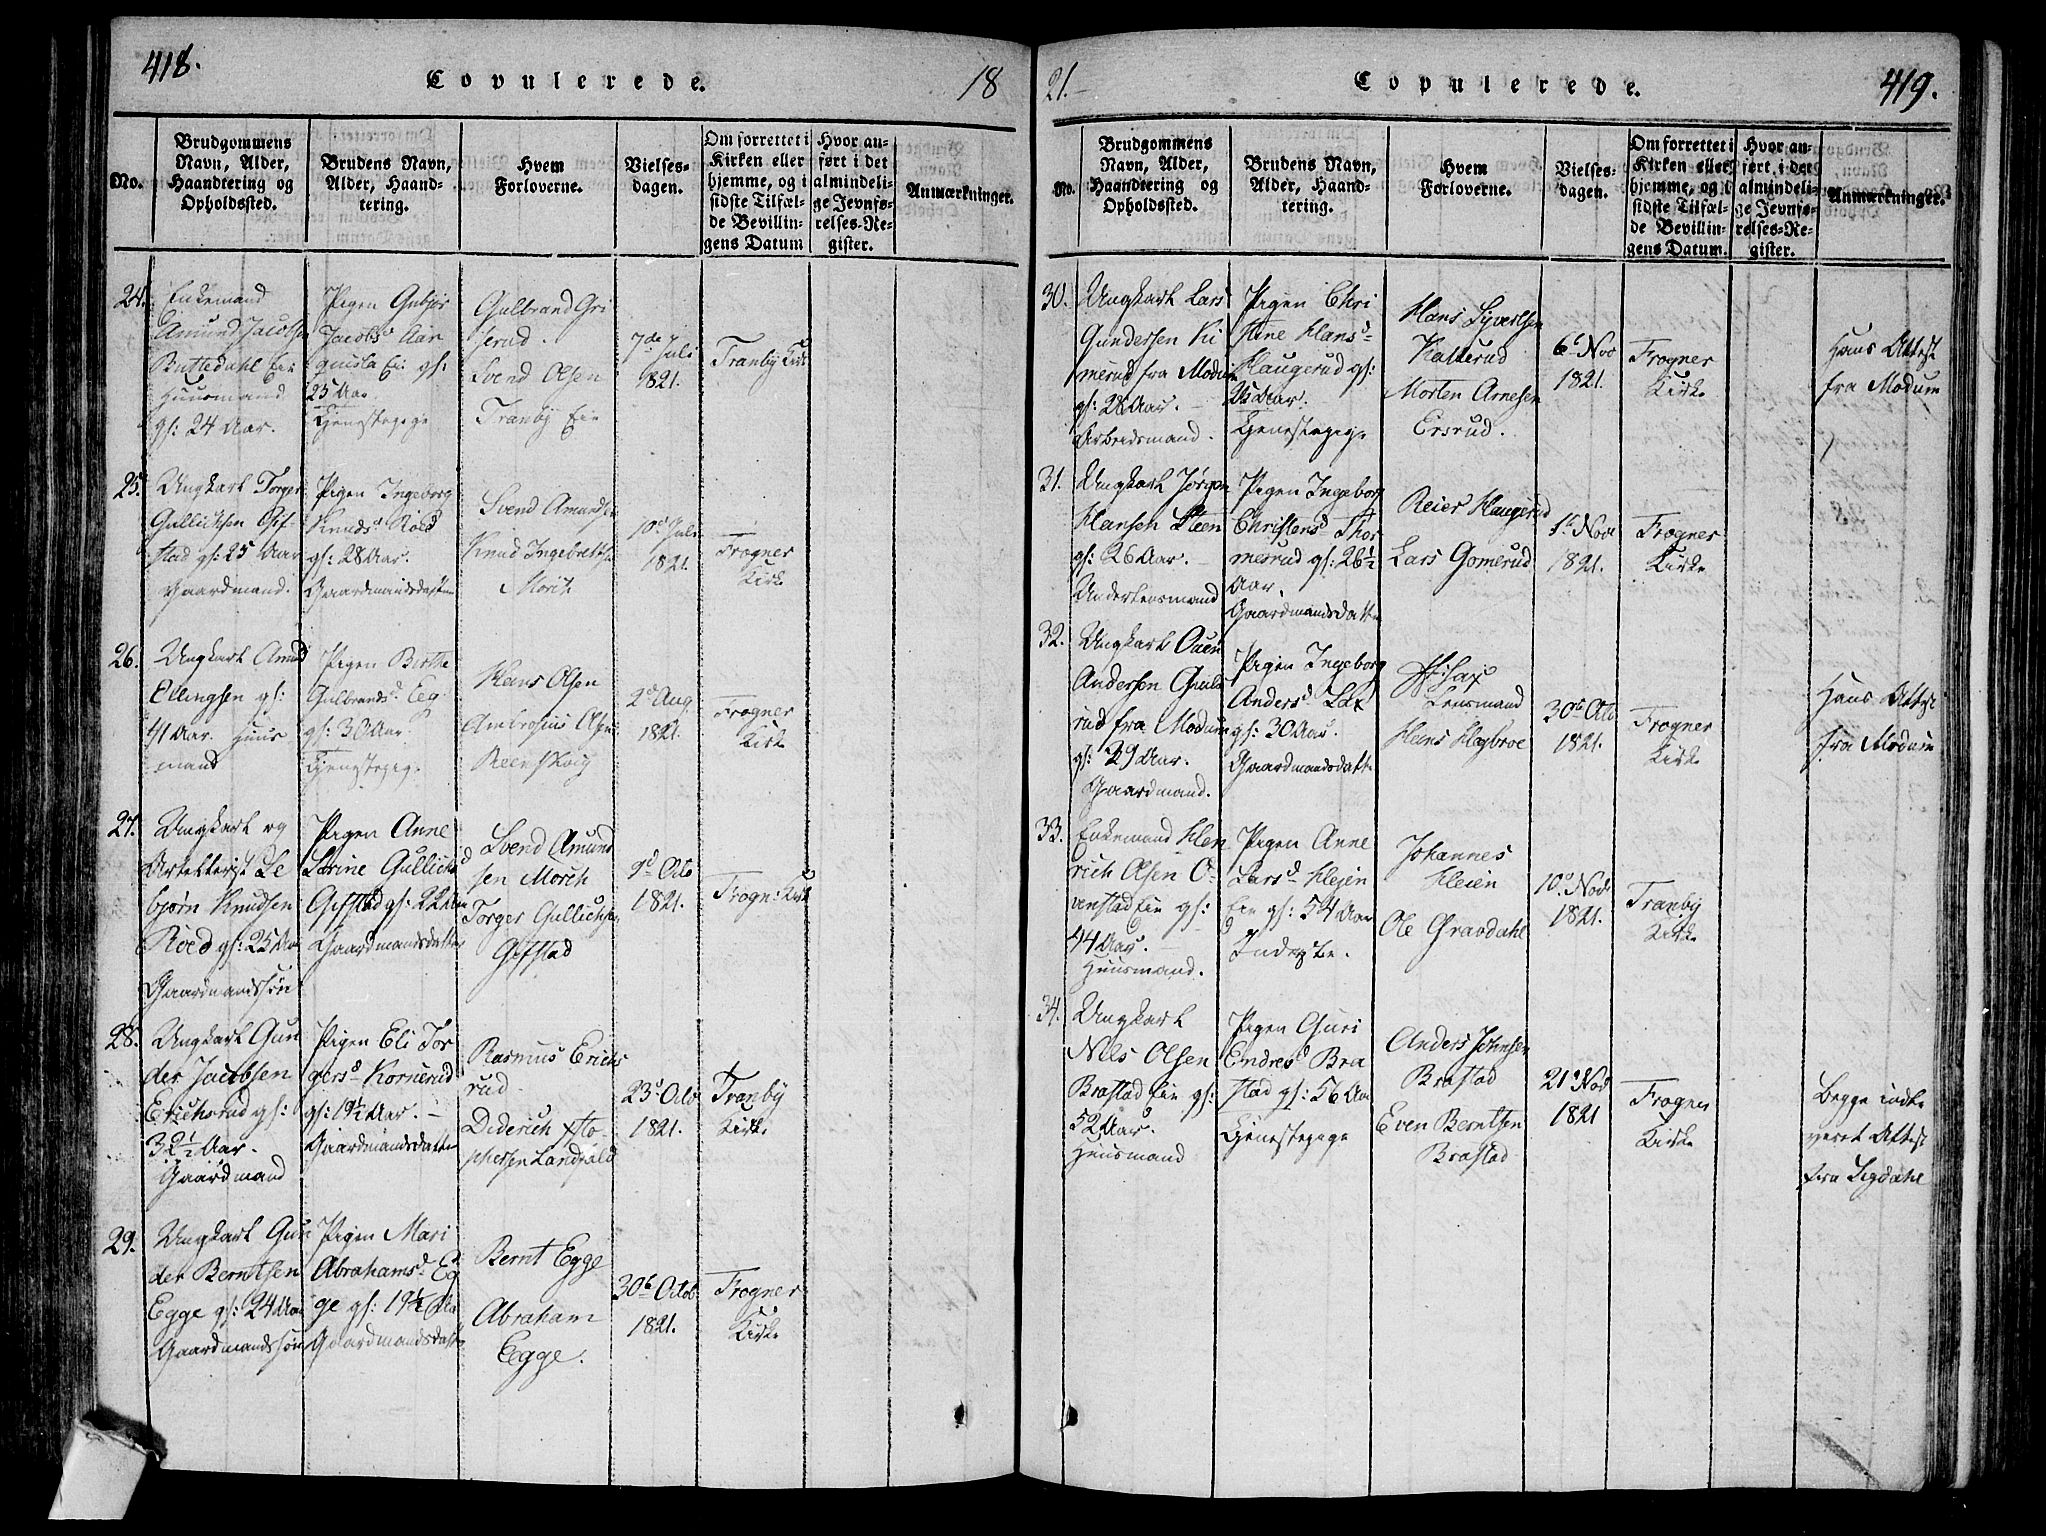 418.
Copulerede.
18
No.
Brudgommens
Navn, Alder,
Haandtering og
Opholdssted.
Brudens Navn,
Alder, Haand-
tering.
Hvem
Forloverne.
Vielses-
dagen.
Om forrettet i
Kirken eller
hjemme, og i
sidste Tilfæl-
de Bevillin-
gens Datum
Hvor an-
ført i det
almindeli-
ge Jevnfø-
relses-Re-
gister.
Anmærkninger.
24.
Enkemand
Amund Jacobsen
Huusmand
gl: 24 Aar.
Pigen Gubjør
Jacobsd
25 Aar
Tjenestepige
Gulbrand Gri
serud.
Svend Olsen
Tranby Eie
7de Juli
1821.
Tranby Kirk
25.
Ungkarl Torger
Gullichsen Gif-
stad gl: 25 Aar
Gaardmand.
Pigen Ingeborg
Knudsd Roed
gl: 28 Aar.
Gaardmandsdatter
Svend Amundsen
Knud Ingebretsen
Morth
10d Juli
1821.
Frogner
Kirke
26.
Ungkarl Amund
Ellingsen gl:
41 Aar. Huus
mand
Pigen Berthe
Gulbrandsd Eeg
gl: 30 Aar.
Tjenestepig.
Hans Olsen
Ambrosius Olsen
Reenskoug
2d Aug
1821.
Frogner
Kirke
27.
Ungkarl og
Le
bjørn Knudsen
Roed gl: 25 Aar
Gaardmandssøn
Pigen Anne
Larine Gullichsd
Gifstad gl: 22 Aar
Gaardmandsdatter
Svend Amund
sen Morth
Torger Gullichsen
Gifstad
9d Octo
1821.
Frogn: Kirk
28.
Ungkarl Gun
der Jacobsen
Erichsrud gl:
32½ Aar.
Gaardmand
Pigen Eli Tor
gersd Kornerud
gl: 19½ Aar. –
Gaardmandsdatter
Rasmus Erichs
rud
Diderich Xsto-
phersen Landfald
23d Octo
1821.
Tranby
Kirke
29.
Ungkarl Gun
der Berntsen
Egge gl: 24 Aar
Gaardmandssøn
Pigen Mari
Abrahamsd Eg
ge gl: 19½ Aar
Gaardmandsdatter
Bernt Egge
Abraham
Egge.
30te Octob
1821.
Frogner
Kirke
21.–
Copulerede.
419.
No.
Brudgommens
Navn, Alder,
Haandtering og
Opholdssted.
Brudens Navn,
Alder, Haand-
tering.
Hvem
Forloverne.
Vielses-
dagen.
Om forrettet i
Kirken eller
hjemme, og i
sidste Tilfæl-
de Bevillin-
gens Datum.
Hvor an-
ført i det
almindeli-
ge Jevnfø-
relses-Re-
gister.
Anmærkninger.
30.
Ungkarl Lars
Gundersen Ki
merud fra Modum
gl: 28 Aar. –
Arbeidsmand.
Pigen Chri
stine Hansd
Haugerud gl:
Aar.
Tjenestepige
Hans Syversen
Katterud
Morten Arnesen
Eisrud.
6t Nov
1821.
Frogner
Kirke
Hans Attest
fra Modum
31.
Ungkarl Jørgen
Hansen Steen
gl: 26 Aar. –
Pigen Ingeborg
Christensd Thor
merud gl: 26½
Aar.
Gaardmandsdatter
Reier Haugerud
Lars Gomerud
1t Novr
1821.
Frogner
Kirke
32.
Ungkarl
Andersen
rud fra Modum
gl: 29 Aar.
Gaardmand.
Pigen Ingeborg
Andersd Sax
gl: 30 Aar.
Gaardmandsdatte
A: Sax
Lensmand
Hans Høgbroe
30te Octo
1821.
Frogner
Kirke
Hans Attest
fra Modum
33.
Enkemand Hen
rich Olsen O-
vnstad Eie gl:
44 Aar. –
Huusmand.
Pigen Anne
Larsd Hejen
Eie gl: 54 Aar
Inderste.
Johannes
Heien
Ole Gravdahl
10d Novr
1821.
Tranby
Kirke
34.
Ungkarl
Nils Olsen
Brastad Eie gl:
52 Aar.
Huusmand
Pigen Guri
Endresd Bra
stad gl: 56 Aar
Tjenestepige
Anders Johnsen
Brastad
Even Berntsen
Brastad
21d Nov
1821
Frogner
Kirke
Begge indle
veret Attest
fra Sigdahl